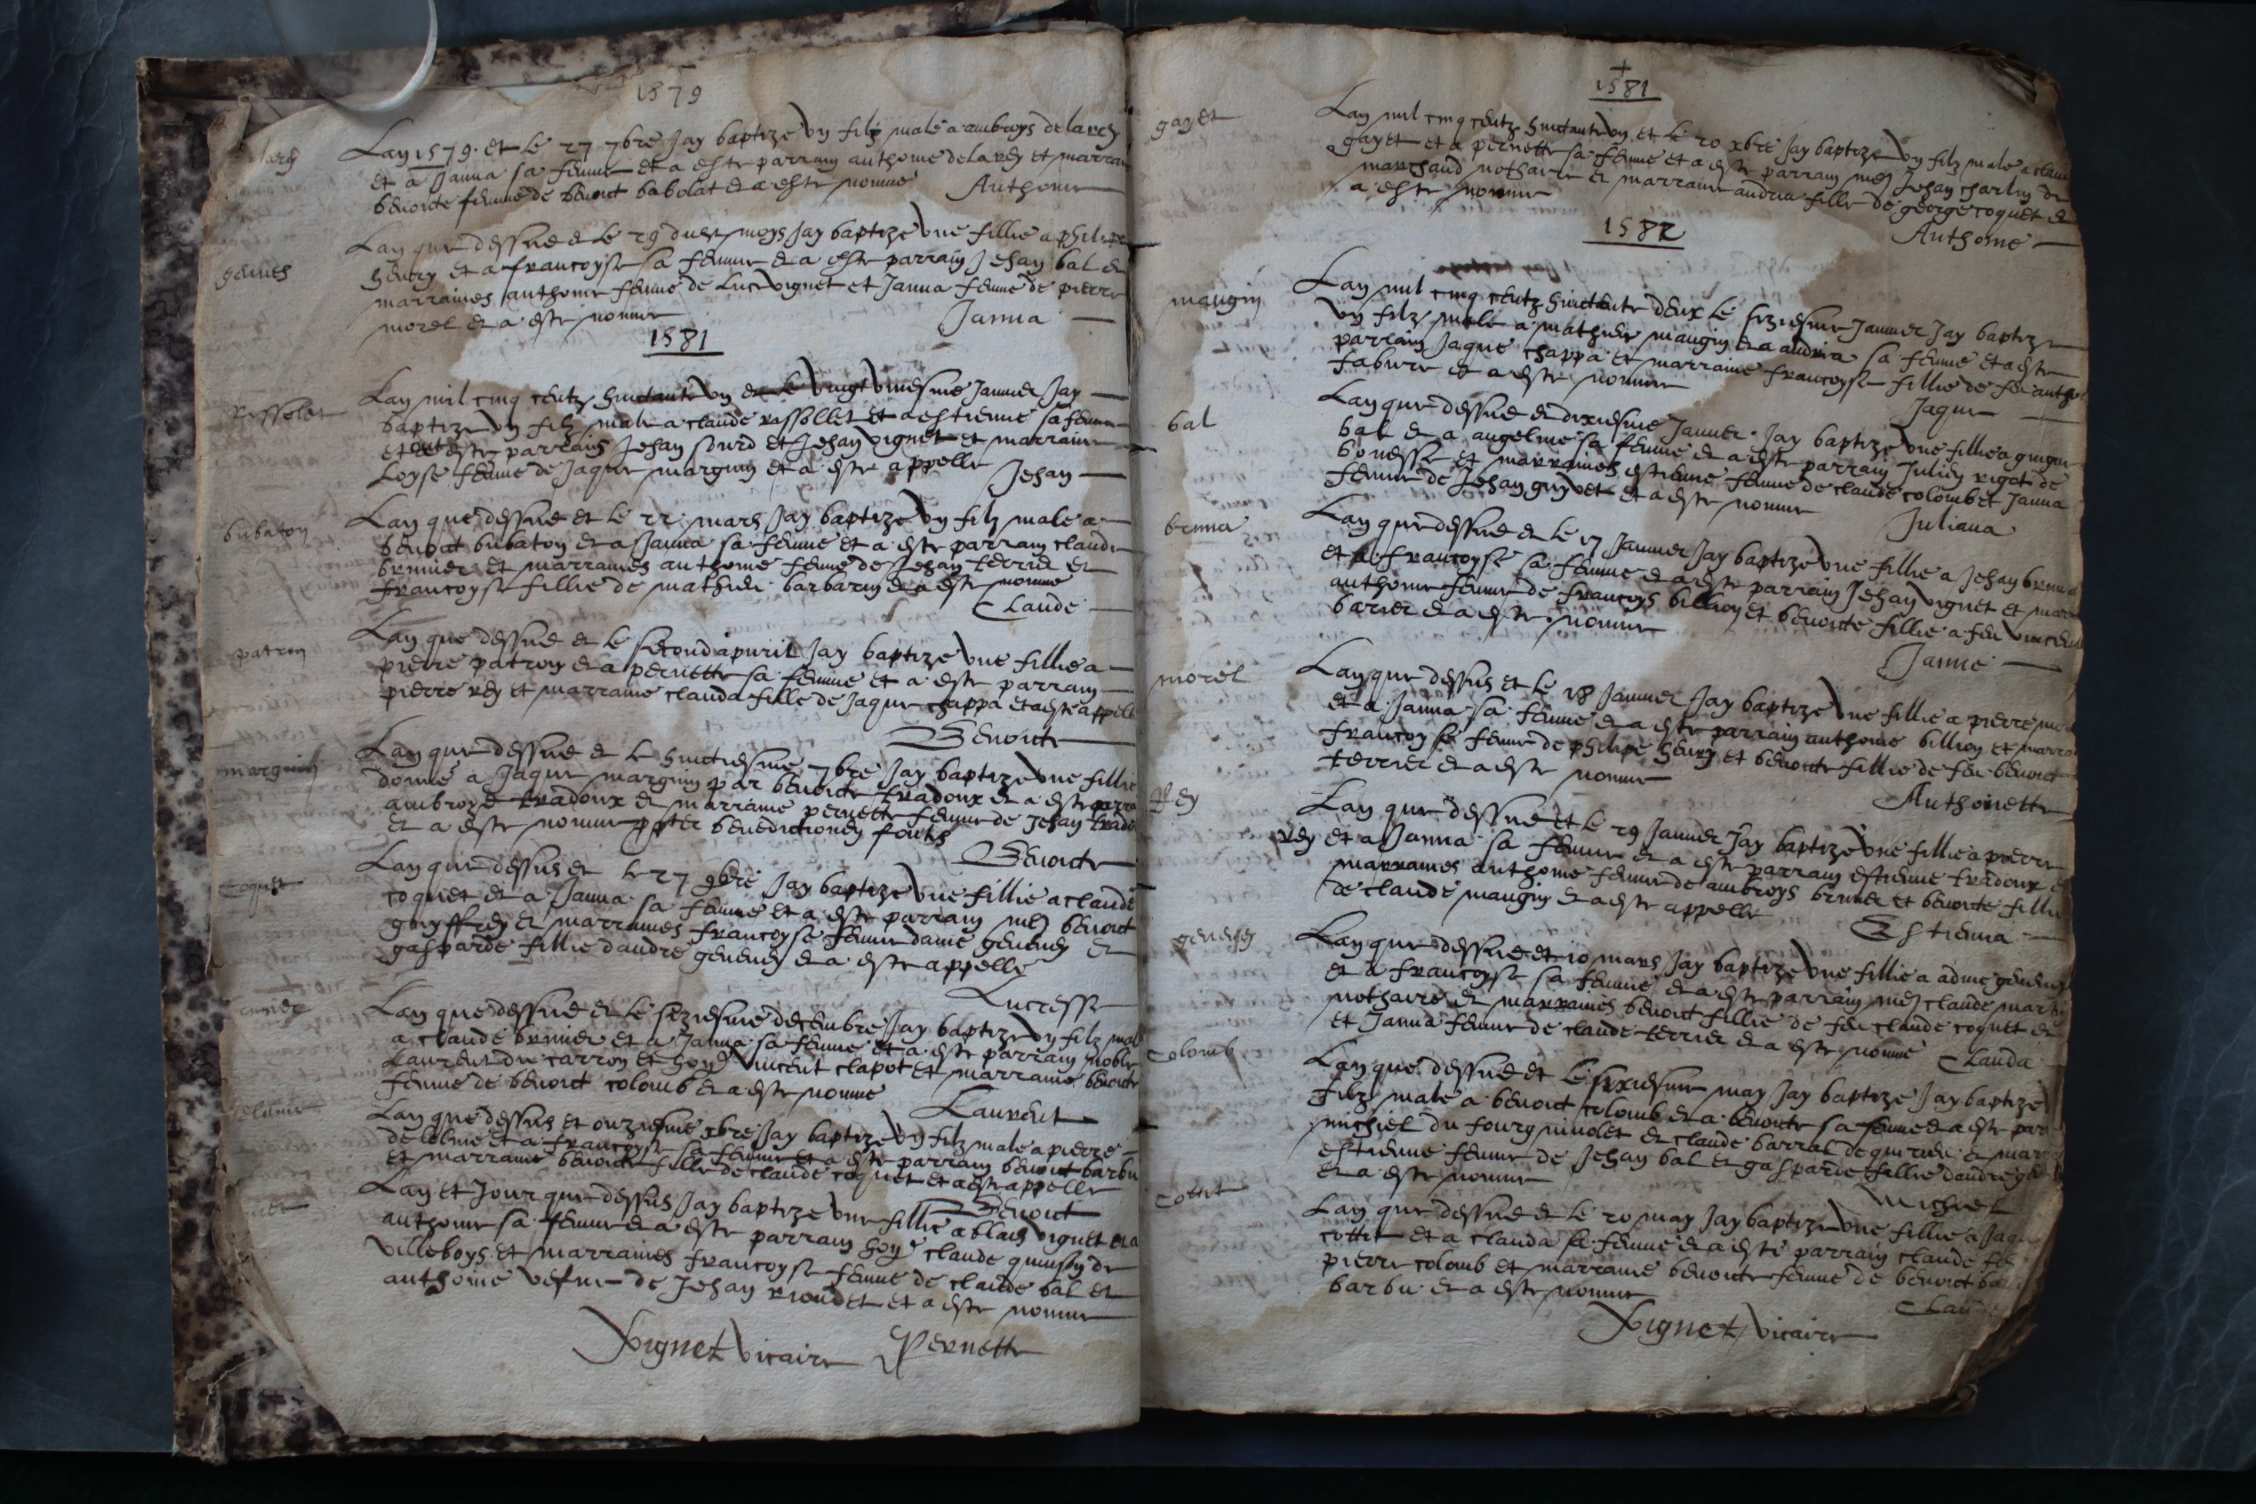 1579
Lan 1579. et le 27 7bre Jay baptize ung filz male a ambroys delarey
et a Janna sa femme et a este parrain anthoine delarey et marrai
benoicte femme de benoict babolat et a este nomme Anthoine
Lan que dessus et le 29 dudit moys Jay baptize une fillie a philipe
henry et a francoyse sa femme et a este parrain Jehan bal et
marraines anthoine femme de Luc vignet et Janna femme de pierre
morel et a este nomme Janna
1581
Rossolet
Lan mil cinq centz huictante un et le vingt uniesme Janvier Jay
baptize ung filz male a claude rossollet et a estienne sa femme
et ont este parrains Jehan sourd et Jehan vignet et marraine
Loyse femme de Jaques marguin et a este appelle Jehan
bubaton
Lan que dessus et le 22 mars Jay baptize ung filz male a
benoict bubaton et a Janna sa femme et a este parrain claude
brunier et marraines anthoine femme de Jehan terrier et
francoyse fillie de mathieu barbarin et a este nomme
Claude
patron
Lan que dessus et le second apvril Jay baptize une fillie a
pierre patron et a pernette sa femme et a este parrain
pierre rey et marraine clauda fille de Jaques chappa et a este appelle
Benoicte
marguin
Lan que dessus et le huictiesme 7bre Jay baptize une fillie
donne a Jaques marguin par benoicte tradoux et a este parra
ambroys tradoux et marraine pernette femme de Jehan trado
et a este nomme benedictionem fontis
Benoicte
Coquet
Lan que dessus et le 27 9bre Jay baptize une fillie a claude
coquet et a Janna sa femme et a este parrain benoict
guyffrey et marraines francoyse femme geneney et
gasparde fillie dandre geneney et a este appelle
Lucresse
Lan que dessus et le seziesme decembre Jay baptize ung filz mal
a claude brunier et a Janna sa femme et a este parrain noble
Laurent du carron et vincent clapot et marraine benoicte
femme de benoict colomb et a este nomme
Laurent
Lan que dessus et onziesme xbre Jay baptize ung filz male a pierre
delolme et a francoyse sa femme et a este parrain benoict barbu
et marraine benoicte fille de claude coquet et a este appelle
Benoict
Lan et Jour que dessus Jay baptize une fillie a blais vignet et a
anthoine sa femme et a este parrain claude quinson de
villeboys et marraines francoyse femme de claude bal et
anthoine vefve de Jehan riondet et a este nomme
Vignet vicaire Pernette
1581
gayet
Lan mil cinq centz huictante un et le 20 xbre Jay baptize ung filz male a claud
gayet et a pernette sa femme et a este parrain Jehan charlin de
marchand nothaire et marraine andria fille de george coquet et
a este nomme
Anthoine
1582
maugin
Lan mil cinq centz huictante deux le seziesme Janvier Jay baptize
ung filz male a mathieu maugin et a andria sa femme et a este
parrain Jaques chappa et marraine francoyse fillie de feu antho
fabvre et a este nomme
Jaques
bal
Lan que dessus et dixiesme Janvier Jay baptize une fillie a
bal et a angeline sa femme et a este parrain Julien rigot de
bonesse et marraines estienne femme de claude colomb et Janna
femme de Jehan guyvet et a este nomme
Juliana
Lan que dessus et le 17 Janvier Jay baptize une fillie a Jehan
et a francoyse sa femme et a este parrain Jehan vignet et marr
anthoine femme de francoys billion et benoicte fillie a feu vincent
barier et a este nomme
Janne
morel
Lan que dessus et le 18 Janvier Jay baptize une fillie a pierre mo
et a Janna sa femme et a este parrain anthoine billion et marra
francoyse femme de philipe henry et benoicte fillie de feu benoict
terrier et a este nomme
Anthoinette
Rey
Lan que dessus et le 29 Janvier Jay baptize une fillie a pierre
rey et a Janna sa femme et a este parrain estienne tradoux et
marraines anthoine femme de ambroys brunier et benoicte fillie
de claude maugin et a este appelle
Estienna
geneney
Lan que dessus et 10 mars Jay baptize une fillie a geneney
et a francoyse sa femme et a este parrain claude marti
nothaire et marraines benoict fillie de feu claude coquet et
et Janna femme de claude terrier et a este nomme Clauda
Colomb
Lan que dessus et le sixiesme may Jay baptize Jay baptize
filz male a benoict colomb et a benoicte sa femme et a este par
michiel du fourg et claude barral de quirieu et marr
estienne femme de Jehan bal et gasparde fillie dandre ge
et a este nomme
Michiel
Cottit
Lan que dessus et le 20 may Jay baptize une fillie a Jaq
cottit et a clauda sa femme et a este parrain claude
pierre colomb et marraine benoicte femme de benoict
barbu et a este nomme
Claud
Vignet vicaire